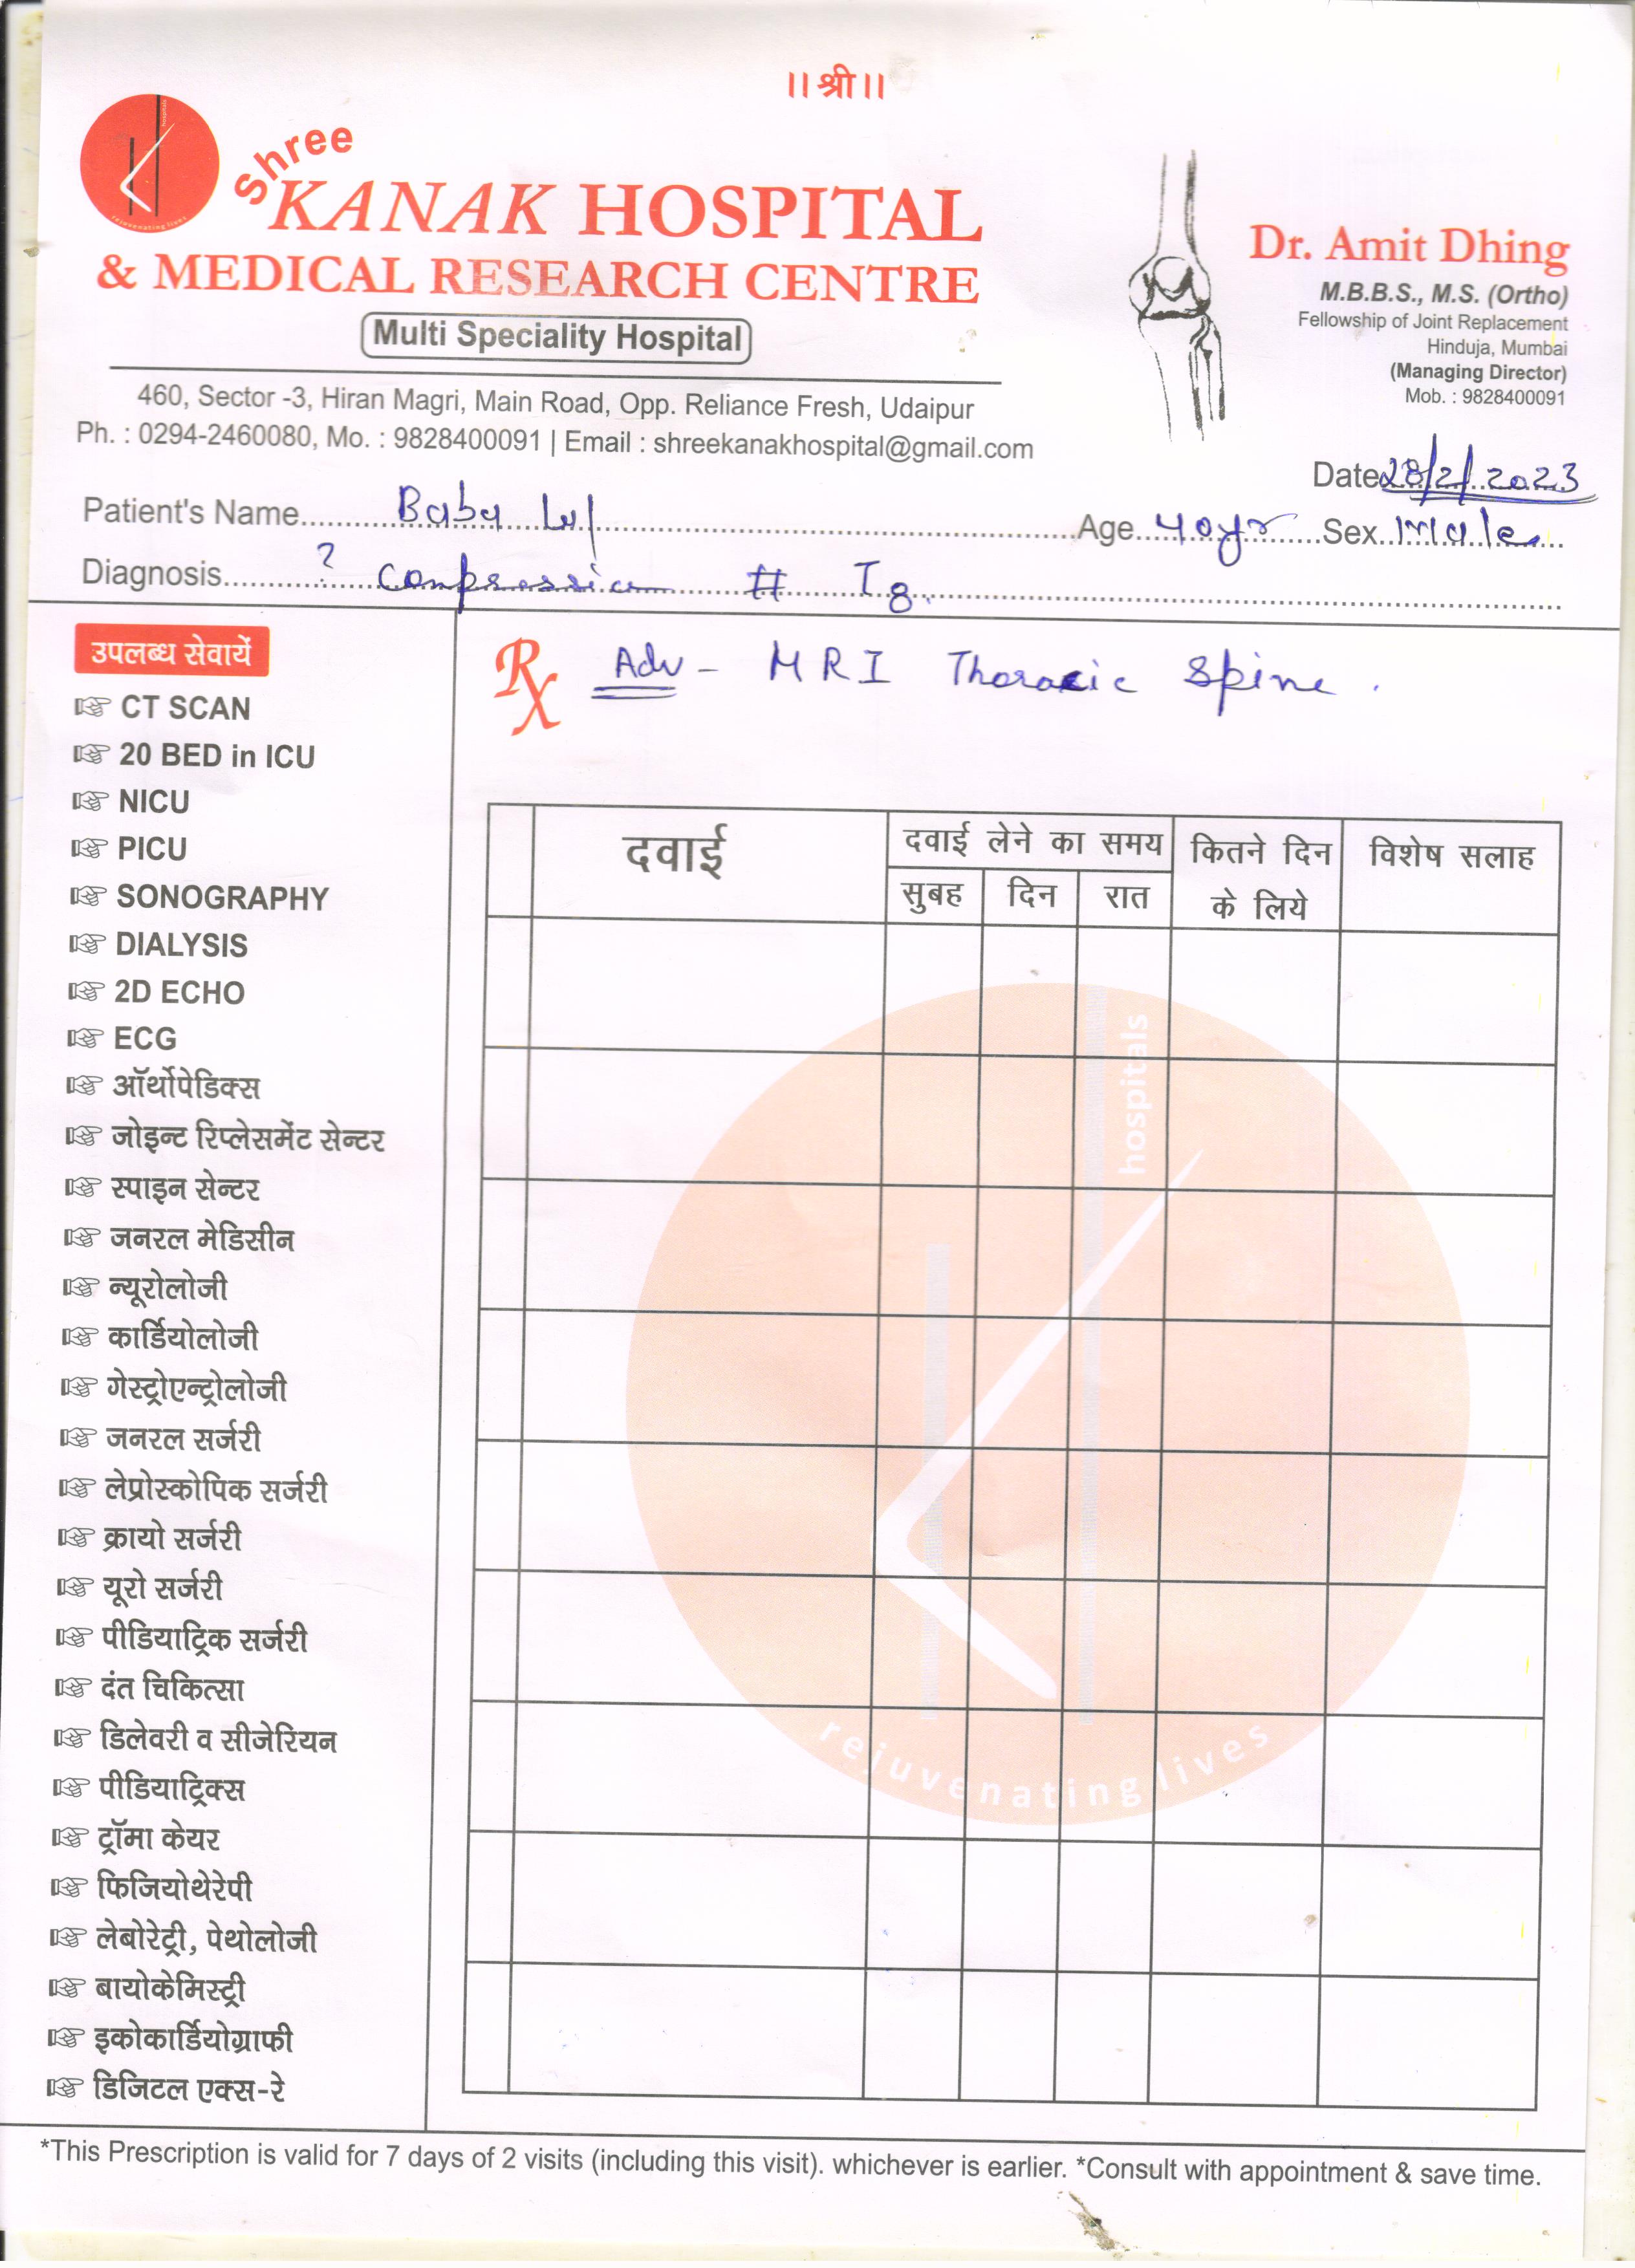 ॥ श्री ॥
hospitals
rejuvenating lives
Shree
KANAK HOSPITAL
& MEDICAL RESEARCH CENTRE
Multi Speciality Hospital
460, Sector -3, Hiran Magri, Main Road, Opp. Reliance Fresh, Udaipur
Ph. : 0294-2460080, Mo. : 9828400091 | Email : shreekanakhospital@gmail.com
Dr. Amit Dhing
M.B.B.S., M.S. (Ortho)
Fellowship of Joint Replacement
Hinduja, Mumbai
(Managing Director)
Mob. : 9828400091
Date 28/2/2023
Patient's Name Baby Age 40yr Sex Male
Diagnosis ? Compression # T8.
उपलब्ध सेवायें
CT SCAN
20 BED in ICU
NICU
PICU
SONOGRAPHY
DIALYSIS
2D ECHO
ECG
ऑर्थोपेडिक्स
जोइन्ट रिप्लेसमेंट सेन्टर
स्पाइन सेन्टर
जनरल मेडिसीन
न्यूरोलोजी
कार्डियोलोजी
गेस्ट्रोएन्ट्रोलोजी
जनरल सर्जरी
लेप्रोस्कोपिक सर्जरी
क्रायो सर्जरी
यूरो सर्जरी
पीडियाट्रिक सर्जरी
दंत चिकित्सा
डिलेवरी व सीजेरियन
पीडियाट्रिक्स
ट्रॉमा केयर
फिजियोथेरेपी
लेबोरेट्री, पेथोलोजी
बायोकेमिस्ट्री
इकोकार्डियोग्राफी
डिजिटल एक्स-रे
Rx Adv - MRI Thoracic Spine.
दवाई दवाई लेने का समय कितने दिन विशेष सलाह
सुबह दिन रात के लिये
hospitals
rejuvenating lives
*This Prescription is valid for 7 days of 2 visits (including this visit). whichever is earlier. *Consult with appointment & save time.